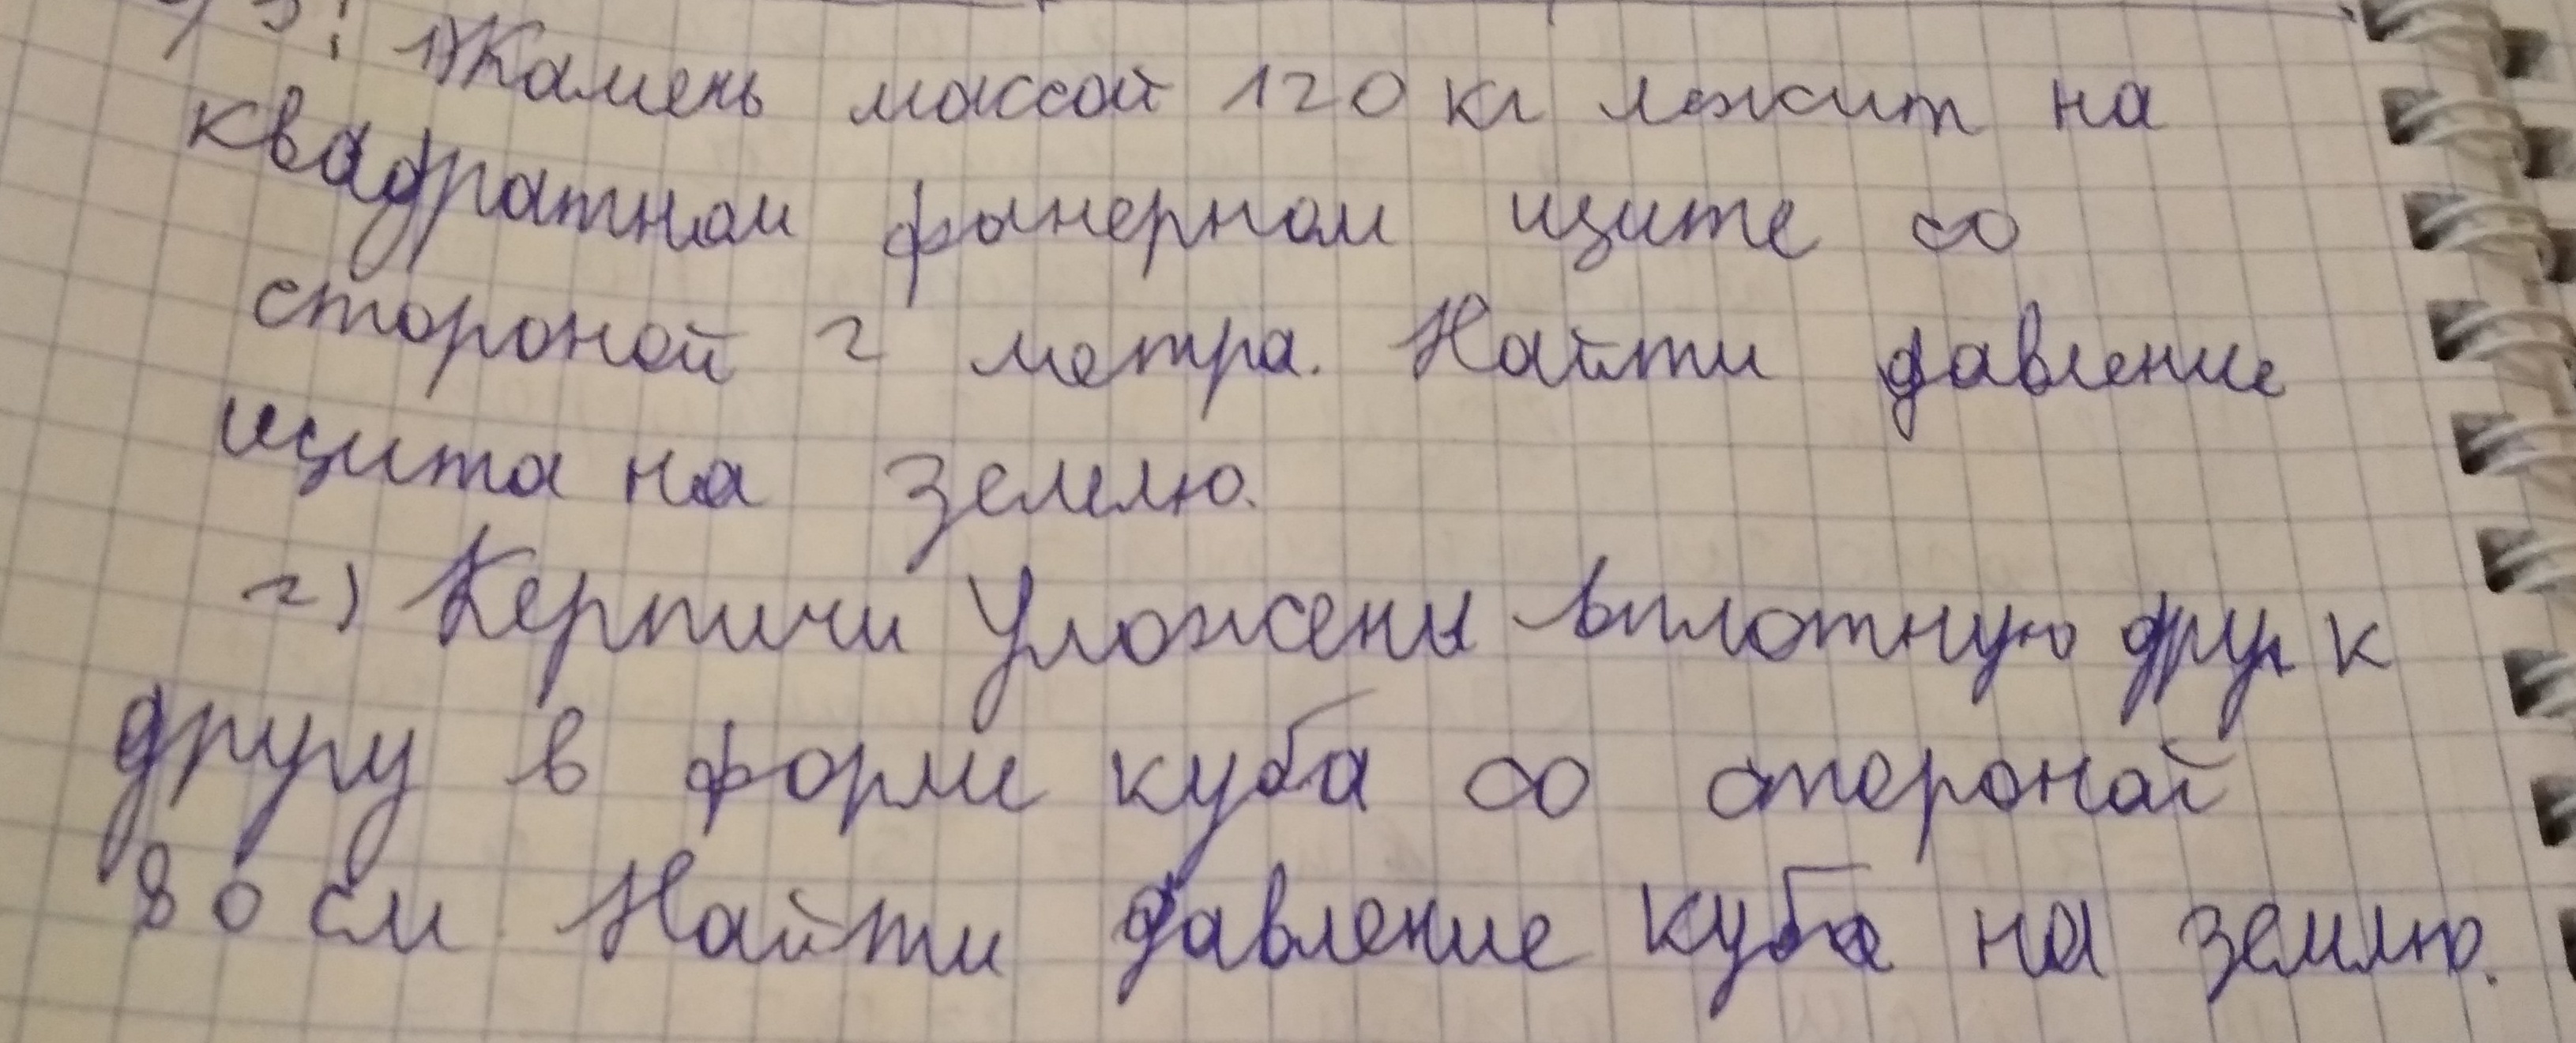 1) Камень массой 120 кг лежит на
квадратном фанерном щите со
стороной 2 метра. Найти давление
щита на землю.
2) Керпичи уложены вплотную друг к
другу в форме куба со стороной
80 см Найти давление куба на землю.